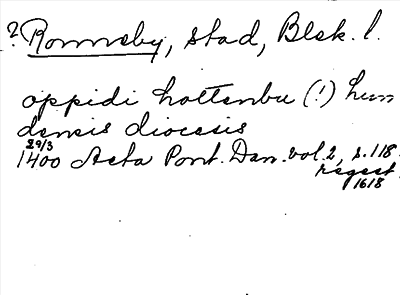 ? Ronneby, stad, Blek. l.
oppidi hottenbu (!) Lun
densis diocesis
29/3
1400 Acta Pont. Dan. vol. 2, s. 118.
regest
1618